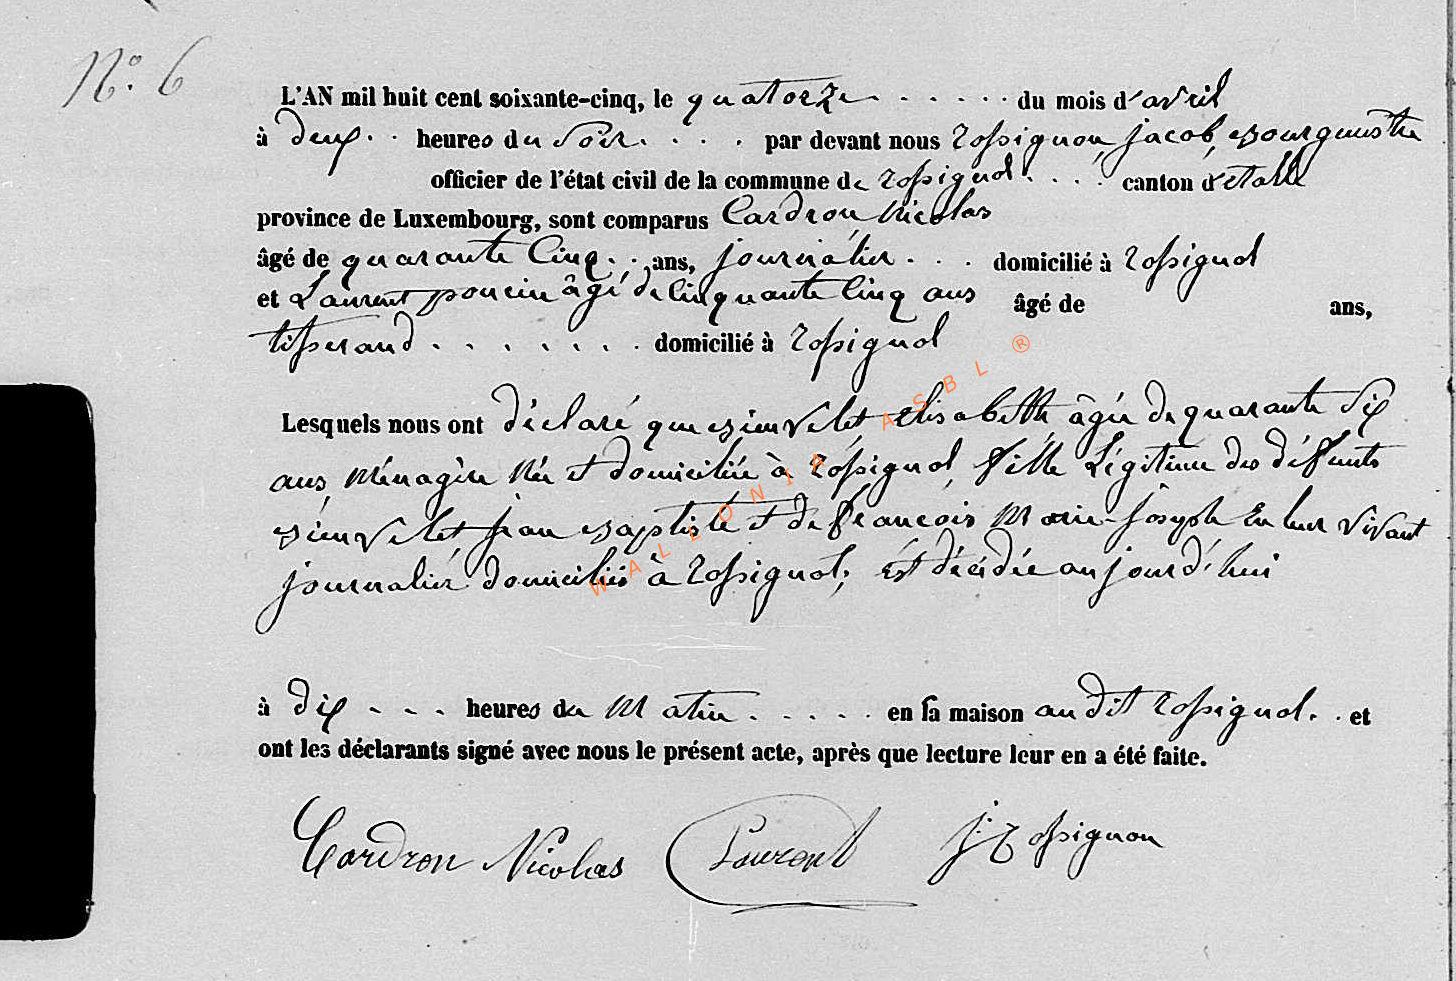 N° 6
L'AN mil huit cent soixante-cinq, le quatorze . . . . . . du mois d'avril
à deux . . heures du soir . . . . par devant nous rossignon, jacob, bourgumstre
officier de l'état civil de la commune de rossignol . . . . canton d'étalle
province de Luxembourg, sont comparus Cardron nicolas
âgé de quarante Cinq . . ans, journalier . . . domicilié à rossignol
et Laurent poncin âgé de Cinquante Cinq ans âgé de ans,
tisserand . . . . . . . domicilié à rossignol
Lesquels nous ont déclaré que bienvelet elisabethe âgée de quarante six
ans, Ménagère Née et domiciliée à rossignol, fille Légitime des défunts
bienvelet jean baptiste et de francois Marie-joseph En leur vivant
journalier domiciliés à rossignol, est décédée aujourd'hui
à dix . . . heures du Matin . . . . . en sa maison audit rossignol . . et
ont les déclarants signé avec nous le présent acte, après que lecture leur en a été faite.
Cardron Nicolas Laurent J. Rossignon
WALLONIA ASBL ®